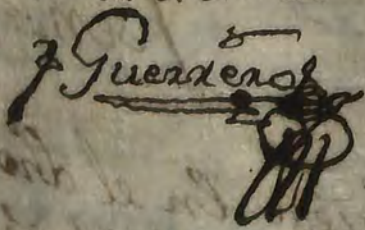 y Guerrero